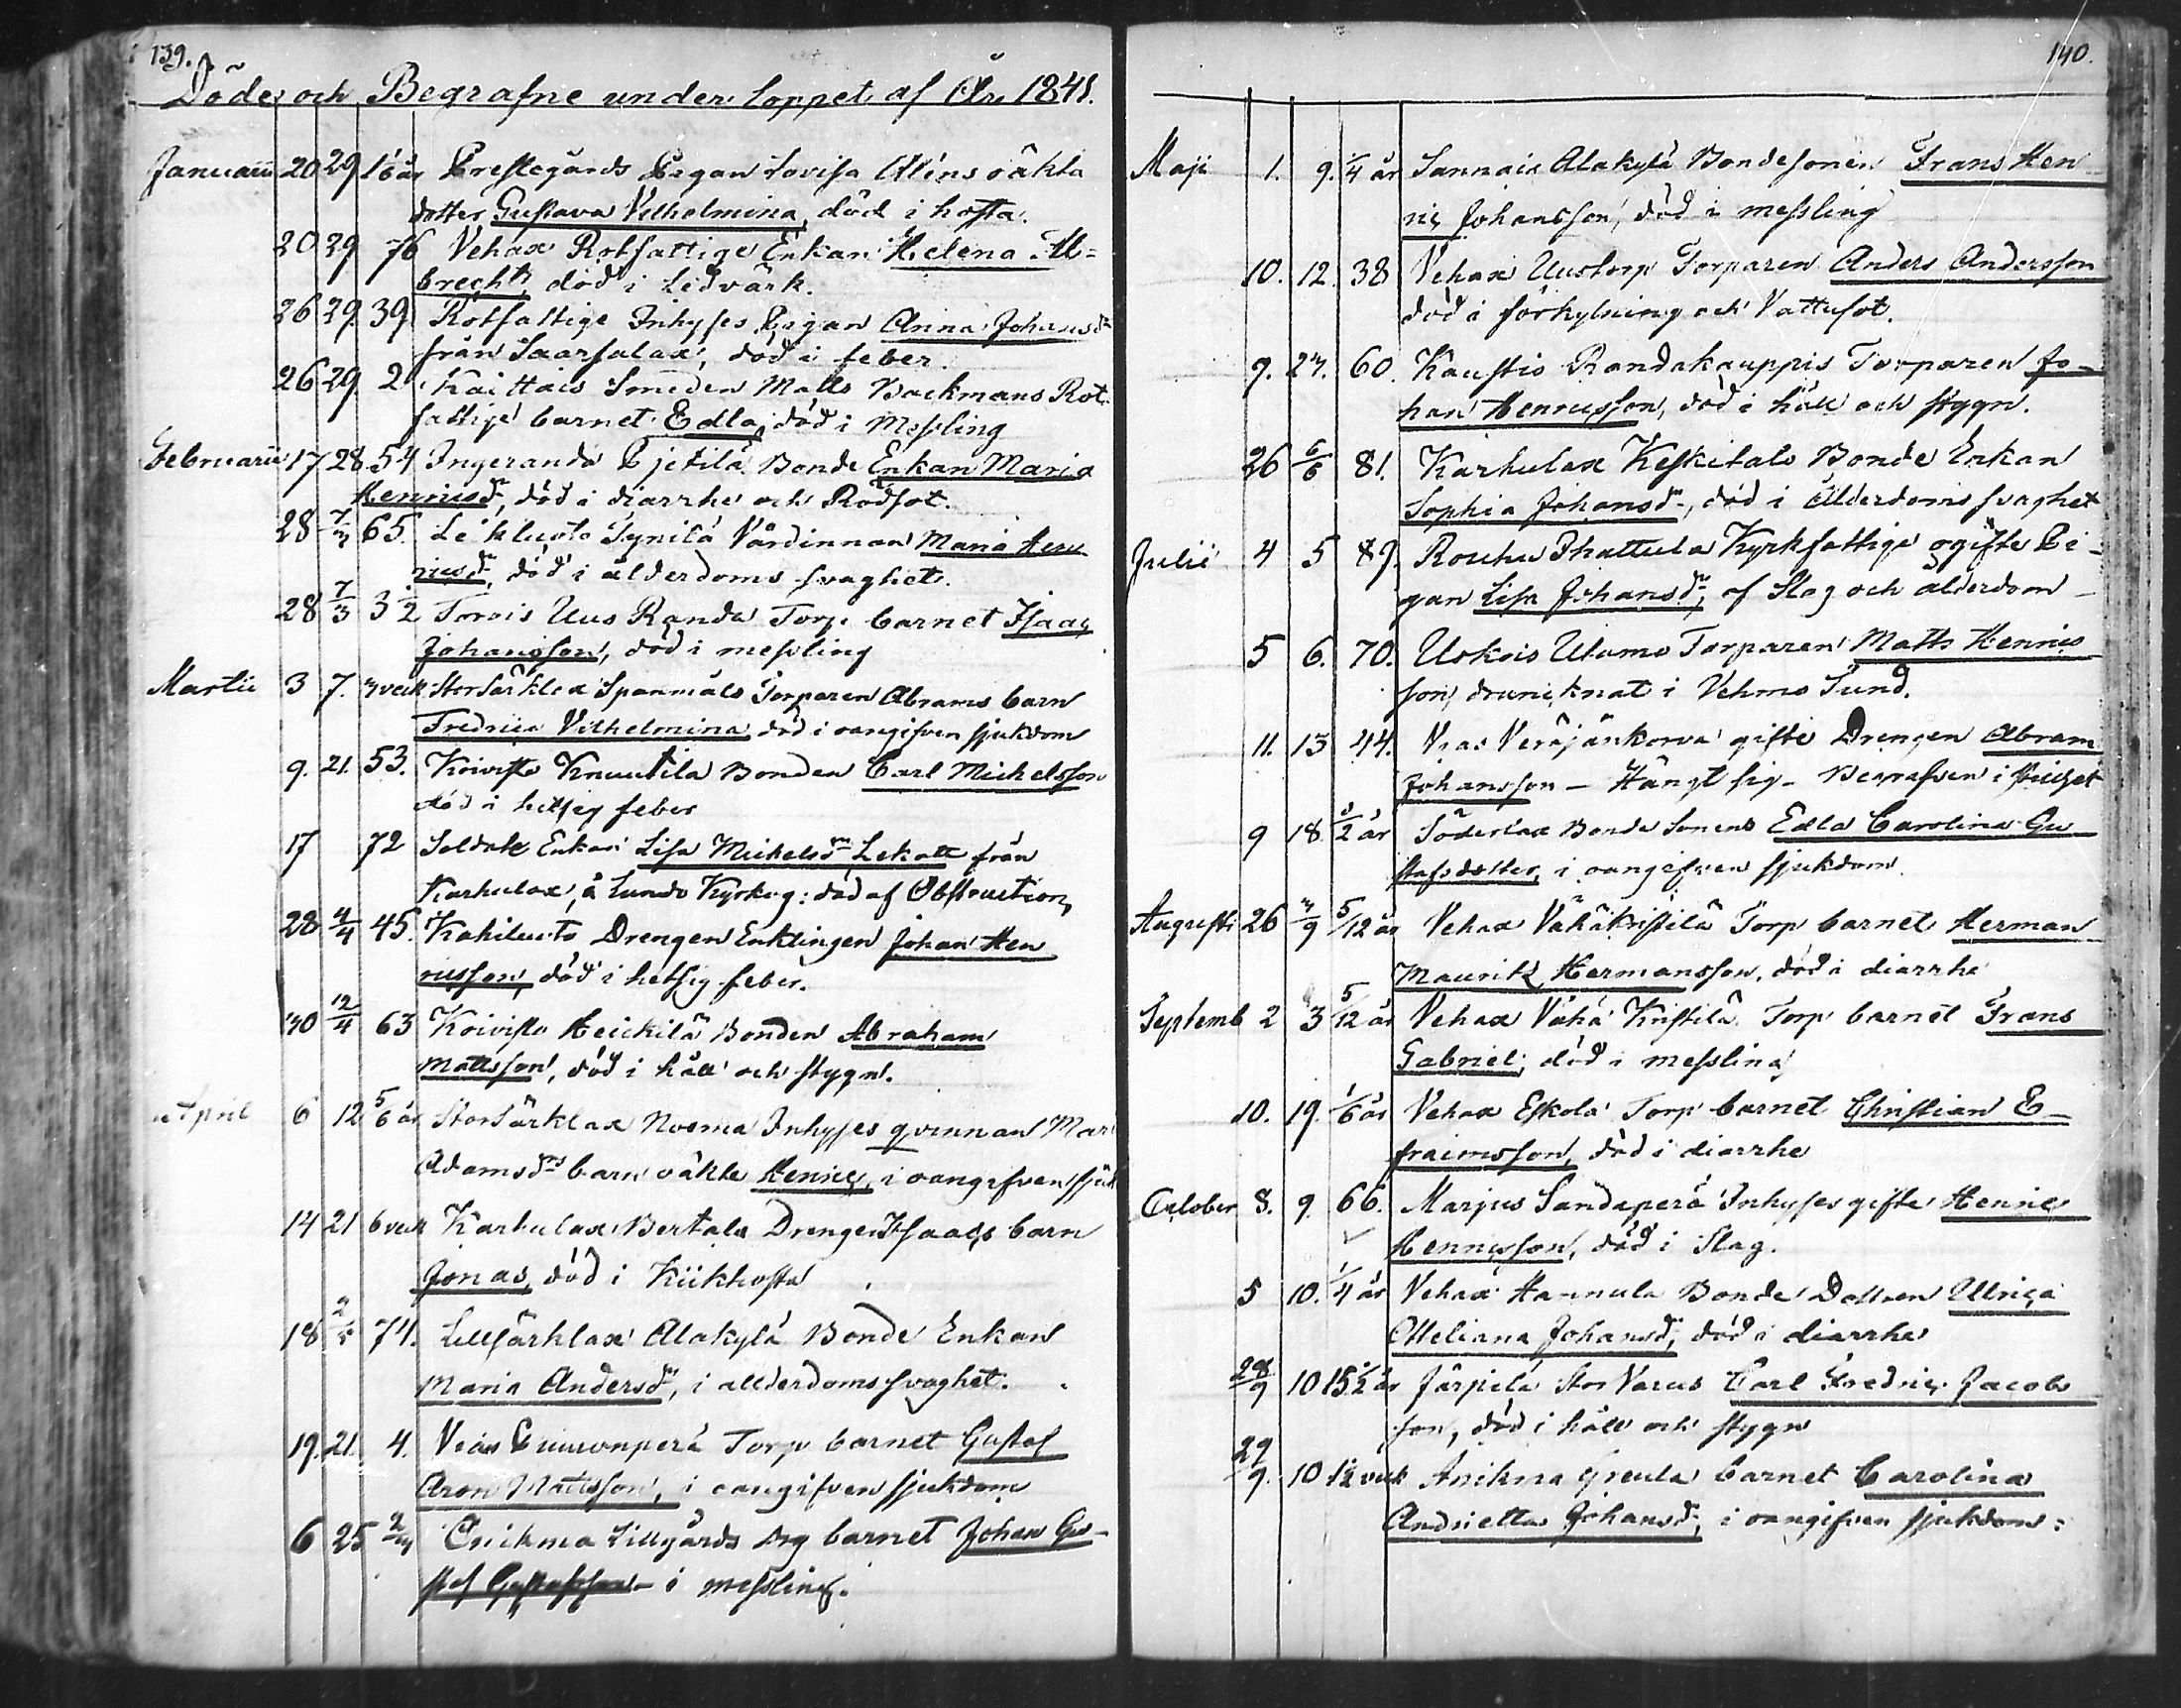 139.
Döde och Begrafne under loppet af År 1841.
Januarii 20 29 1/6 år Prestegårds Pigan Lovisa Aléns oäkta
dotter Gustava Vilhelmina, död i hosta.
20 29 76 Vehax Rotfattige Enkan Helena Al=
brecht, död i Ledvärk.
26 29 39 Rotfattige Inhyses Pigan Anna Johansdr
från Saarsalax, död i feber.
26 29 2 Kaittais Smeden Matts Backmans Rot-
fattige barnet Edla, död i Messling
Februarii 17 28 54 Ingeranda Pietilä Bonde Enkan Maria
Henricsdr, död i diarrhe och Rödsot.
28 7/3 65. Leikluoto Synilä Värdinnan Maria Hen
ricsdr, död i ålderdoms svaghet.
28 7/3 3 1/2 Torvis Uus Randa Torp barnet Isaac
Johansson, död i messling
Martii 3 7. 3 veck Storsärklax Spanmäls Torparen Abrams barn
Fredrica Vilhelmina död i oangifven sjukdom
9. 21. 53. Koivisto Knuutila Bonden Carl Michelsson
död i hetsig feber
17 72 Soldate Enkan Lisa Michelsdr Lekatt från
Karhulax, å Lundo Kyrkog: död af Obstruction
28 4/4 45. Kahiluoto Drengen Enklingen Johan Hen
ricsson, död i hetsig feber.
30 12/4 63 Koivisto Heickilä Bonden Abraham
Mattsson, död i håll och stygn.
April 6 12 5/6 år Storsärklax Noema Inhyses qvinnan Mari
Adamsdrs barn oäkte Henric, i oangifven sjuk
14 21 6 veck Karhulax Bertala Drengen Isaacs barn
Jonas, död i Kikhosta
18 2/5 74. Lillsärklax Alakylä Bonde Enkan
Maria Andersdr, i allderdoms svaghet.
19. 21. 4. Vias Puuronperä Torp barnet Gustaf
Aron Mattsson, i oangifven sjukdom
6 25 Onikma Lillgårds barnet Johan Gu-
staf Gustafsson i messling.
140.
Maji 1. 9. 1/4 år Sannais Alakylä Bondesonen Frans Hen
ric Johansson, död i messling
10. 12. 38 Vehax Uustorp Torparen Anders Andersson
död i förkylning och Vattusot.
9. 23. 60. Kaustio Randakauppis Torparen Jo-
han Henricsson, död i håll och stygn.
26 6/6 81. Karhulax Keskitalo Bonde Enkan
Sophia Johansdr, död i Ålderdoms svaghet
Julii 4 5 89. Rouhu Phattula Kyrkfattige ogifte Pi-
gan Lisa Johansdr, af Slag och ålderdom
5 6. 70. Uskois Ulamo Torparen Matts Henrics
son druncknat i Vehmo Sund.
11. 13 44. Vias Veräjänkorva gifte Drengen Abram
Johansson - Hängt sig - Begrafven i stillhet
9 18 1/2 år Söderlax Bonde Sonens Edla Carolina Gu
stafsdotter, i oangifven sjukdom.
Augusti 26 3/9 5/12 år Vehax Vähäkristilä Torp barnet Herman
Mauritz Hermansson, död i diarrhe
Septemb 2 3 5/12 år Vehax Vähä Kristilä Torp barnet Frans
Gabriel, död i messling
10. 19. 1/6 år Vehax Eskola Torp barnet Christian E-
fraimsson, död i diarrhe
October 8. 9. 66. Marjus Sandaperä Inhyses gifte Henric
Henricsson, död i Slag.
5 10. 1/4 år Vehax Hannula Bonde Dottren Ulrica
Otteliana Johansdr, död i diarrhe
28/9 10 15 1/2 år Järpilä Stor Varus Carl Fredric Jacobs
son, död i håll och stygn
29/9. 10 1 1/2 veck Anikma Greula barnet Carolina
Andrietta Johansdr, i oangifven sjukdom: